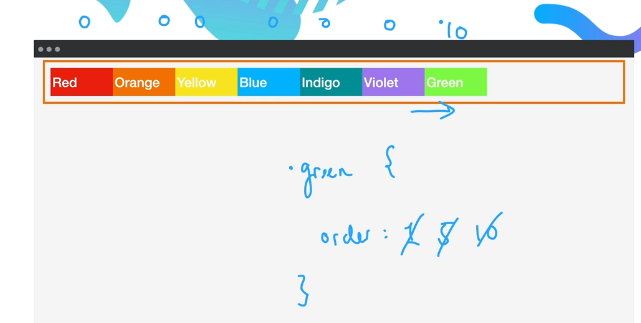 0 0 0 0 0 0 10
Red Orange Yellow Blue Indigo Violet Green
.green {
order: 1 5 10
}